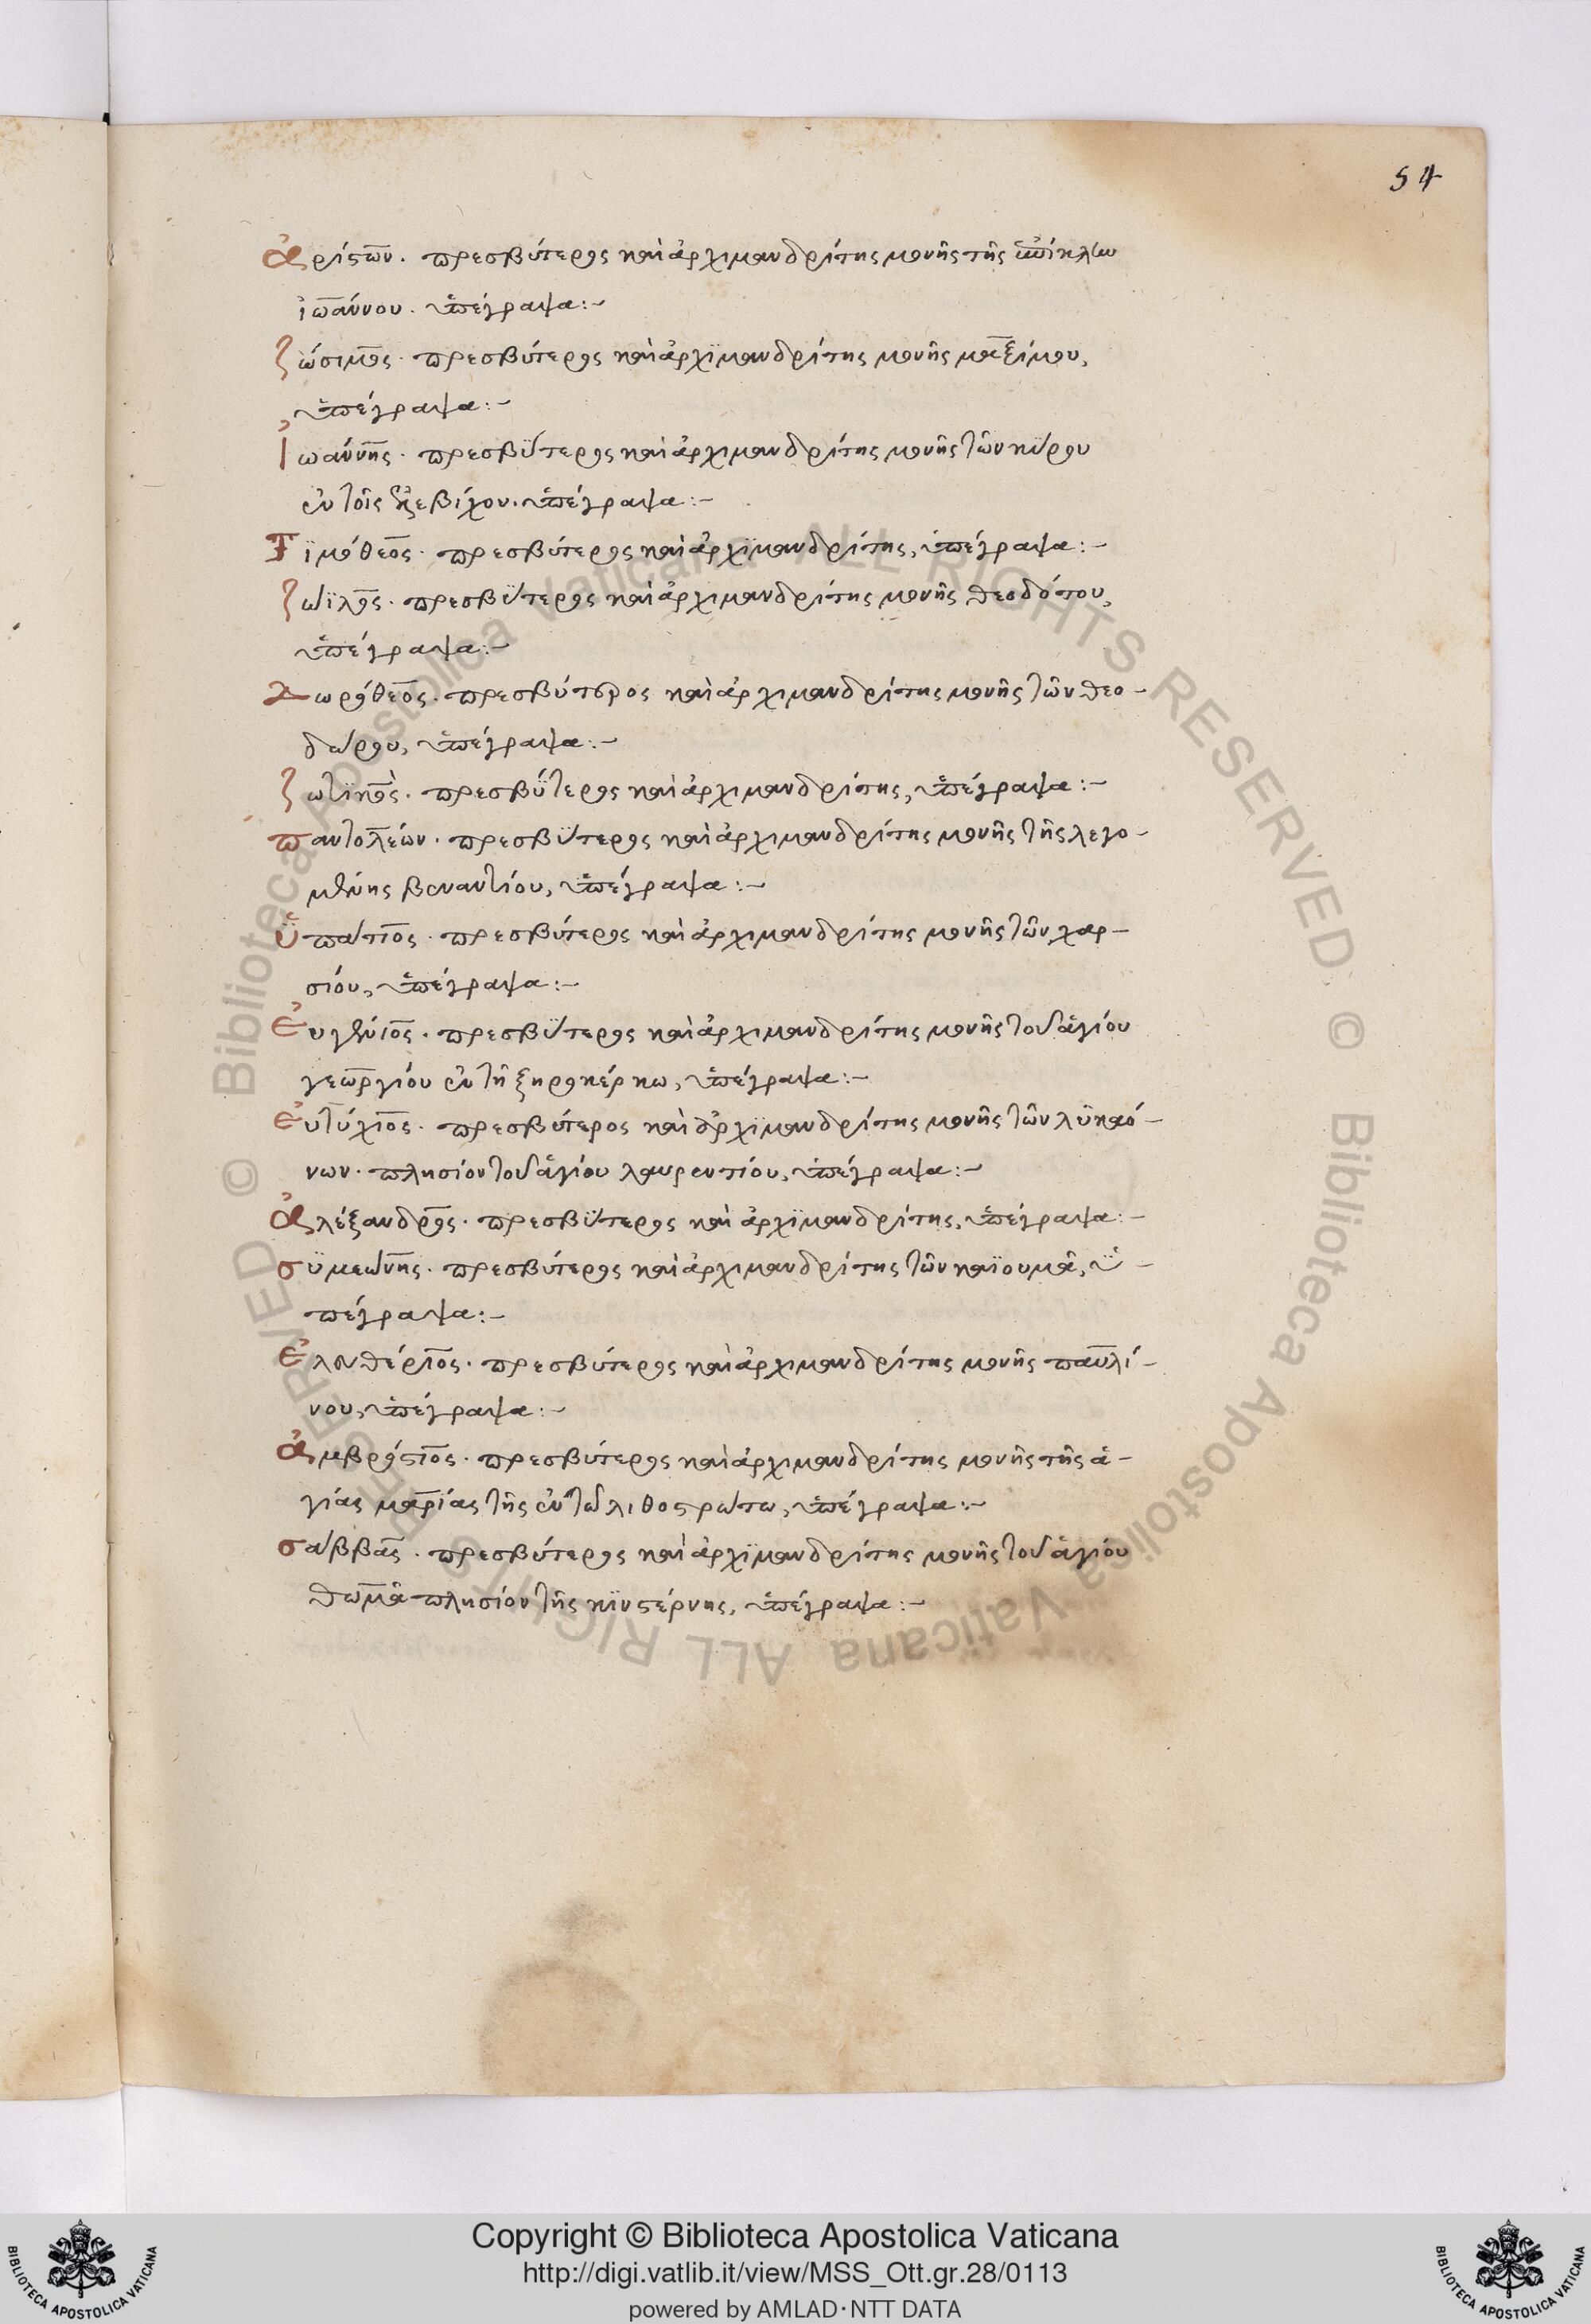 54
ἀρίστων. πρεσβύτερος καὶ ἀρχιμανδρίτης μονῆς τῆς ἐπίκλην
ἰωάννου. ὑπέγραψα:-
ζώσιμος. πρεσβύτερος καὶ ἀρχϊμανδρίτης μονῆς μαξίμου,
ὑπέγραψα:-
ἰωάννης. πρεσβΰτερος καὶ ἀρχιμανδρίτης μονῆς τῶν κύρου
ἐν τοῖς δεξεβίχου. ὑπέγραψα:-
Τϊμόθεος. πρεσβύτερος καὶ ἀρχϊμανδρίτης, ὑπέγραψα:-
ζωΐλος. πρεσβΰτερος καὶ ἀρχιμανδρίτης μονῆς θεοδότου,
ὑπέγραψα:-
Δωρόθεος. πρεσβύτερος καὶ ἀρχιμανδρίτης μονῆς τῶν θεο-
δώρου, ὑπέγραψα:-
ζωτϊκὸς. πρεσβΰτερος καὶ ἀρχιμανδρίτης, ὑπέγραψα:-
παντολέων. πρεσβΰτερος καὶ ἀρχιμανδρίτης μονῆς τῆς λεγο-
μένης βεναντίου, ὑπέγραψα:-
ὑπάτιος. πρεσβύτερος καὶ ἀρχιμανδρίτης μονῆς τῶν χαρ-
σίου, ὑπέγραψα:-
Ἐυγένιος. πρεσβΰτερος καὶ ἀρχιμανδρίτης μονῆς τοῦ ἁγίου
γεωργίου ἐν τῆ ξηροκέρκω, ὑπέγραψα:-
ἐυτύχιος. πρεσβύτερος καὶ ἀρχϊμανδρίτης μονῆς τῶν λϋκαό-
νων. πλησίον τοῦ ἁγίου λαυρεντίου, ὑπέγραψα:-
ἀλέξανδρος. πρεσβΰτερος καὶ ἀρχϊμανδρίτης, ὑπέγραψα:-
σϋμεώνης. πρεσβύτερος καὶ ἀρχιμανδρίτης τῶν καϊουμᾶ, ὑ-
πέγραψα:-
ἐλευθέριος. πρεσβύτερος καὶ ἀρχιμανδρίτης μονῆς παυλί-
νου, ὑπέγραψα:-
ἀμβρόσιος. πρεσβύτερος καὶ ἀρχιμανδρίτης μονῆς τῆς ἁ-
γίας μαρίας τῆς ἐν τῶ λιθοστρώτω, ὑπέγραψα:-
σάββας. πρεσβύτερος καὶ ἀρχϊμανδρίτης μονῆς τοῦ ἁγίου
θωμᾶ πλησίον τῆς κϊνστέρνης, ὑπέγραψα:-
© Biblioteca Apostolica Vaticana ALL RIGHTS RESERVED © Biblioteca Apostolica Vaticana ALL RIGHTS RESERVED
Copyright © Biblioteca Apostolica Vaticana
http://digi.vatlib.it/view/MSS_Ott.gr.28/0113
powered by AMLAD·NTT DATA
BIBLIOTECA APOSTOLICA VATICANA
BIBLIOTECA APOSTOLICA VATICANA